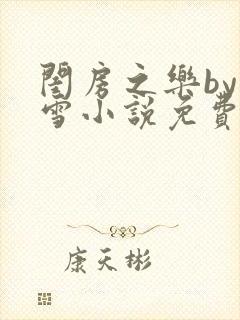 閨房之樂by
雪小說免費
康天彬